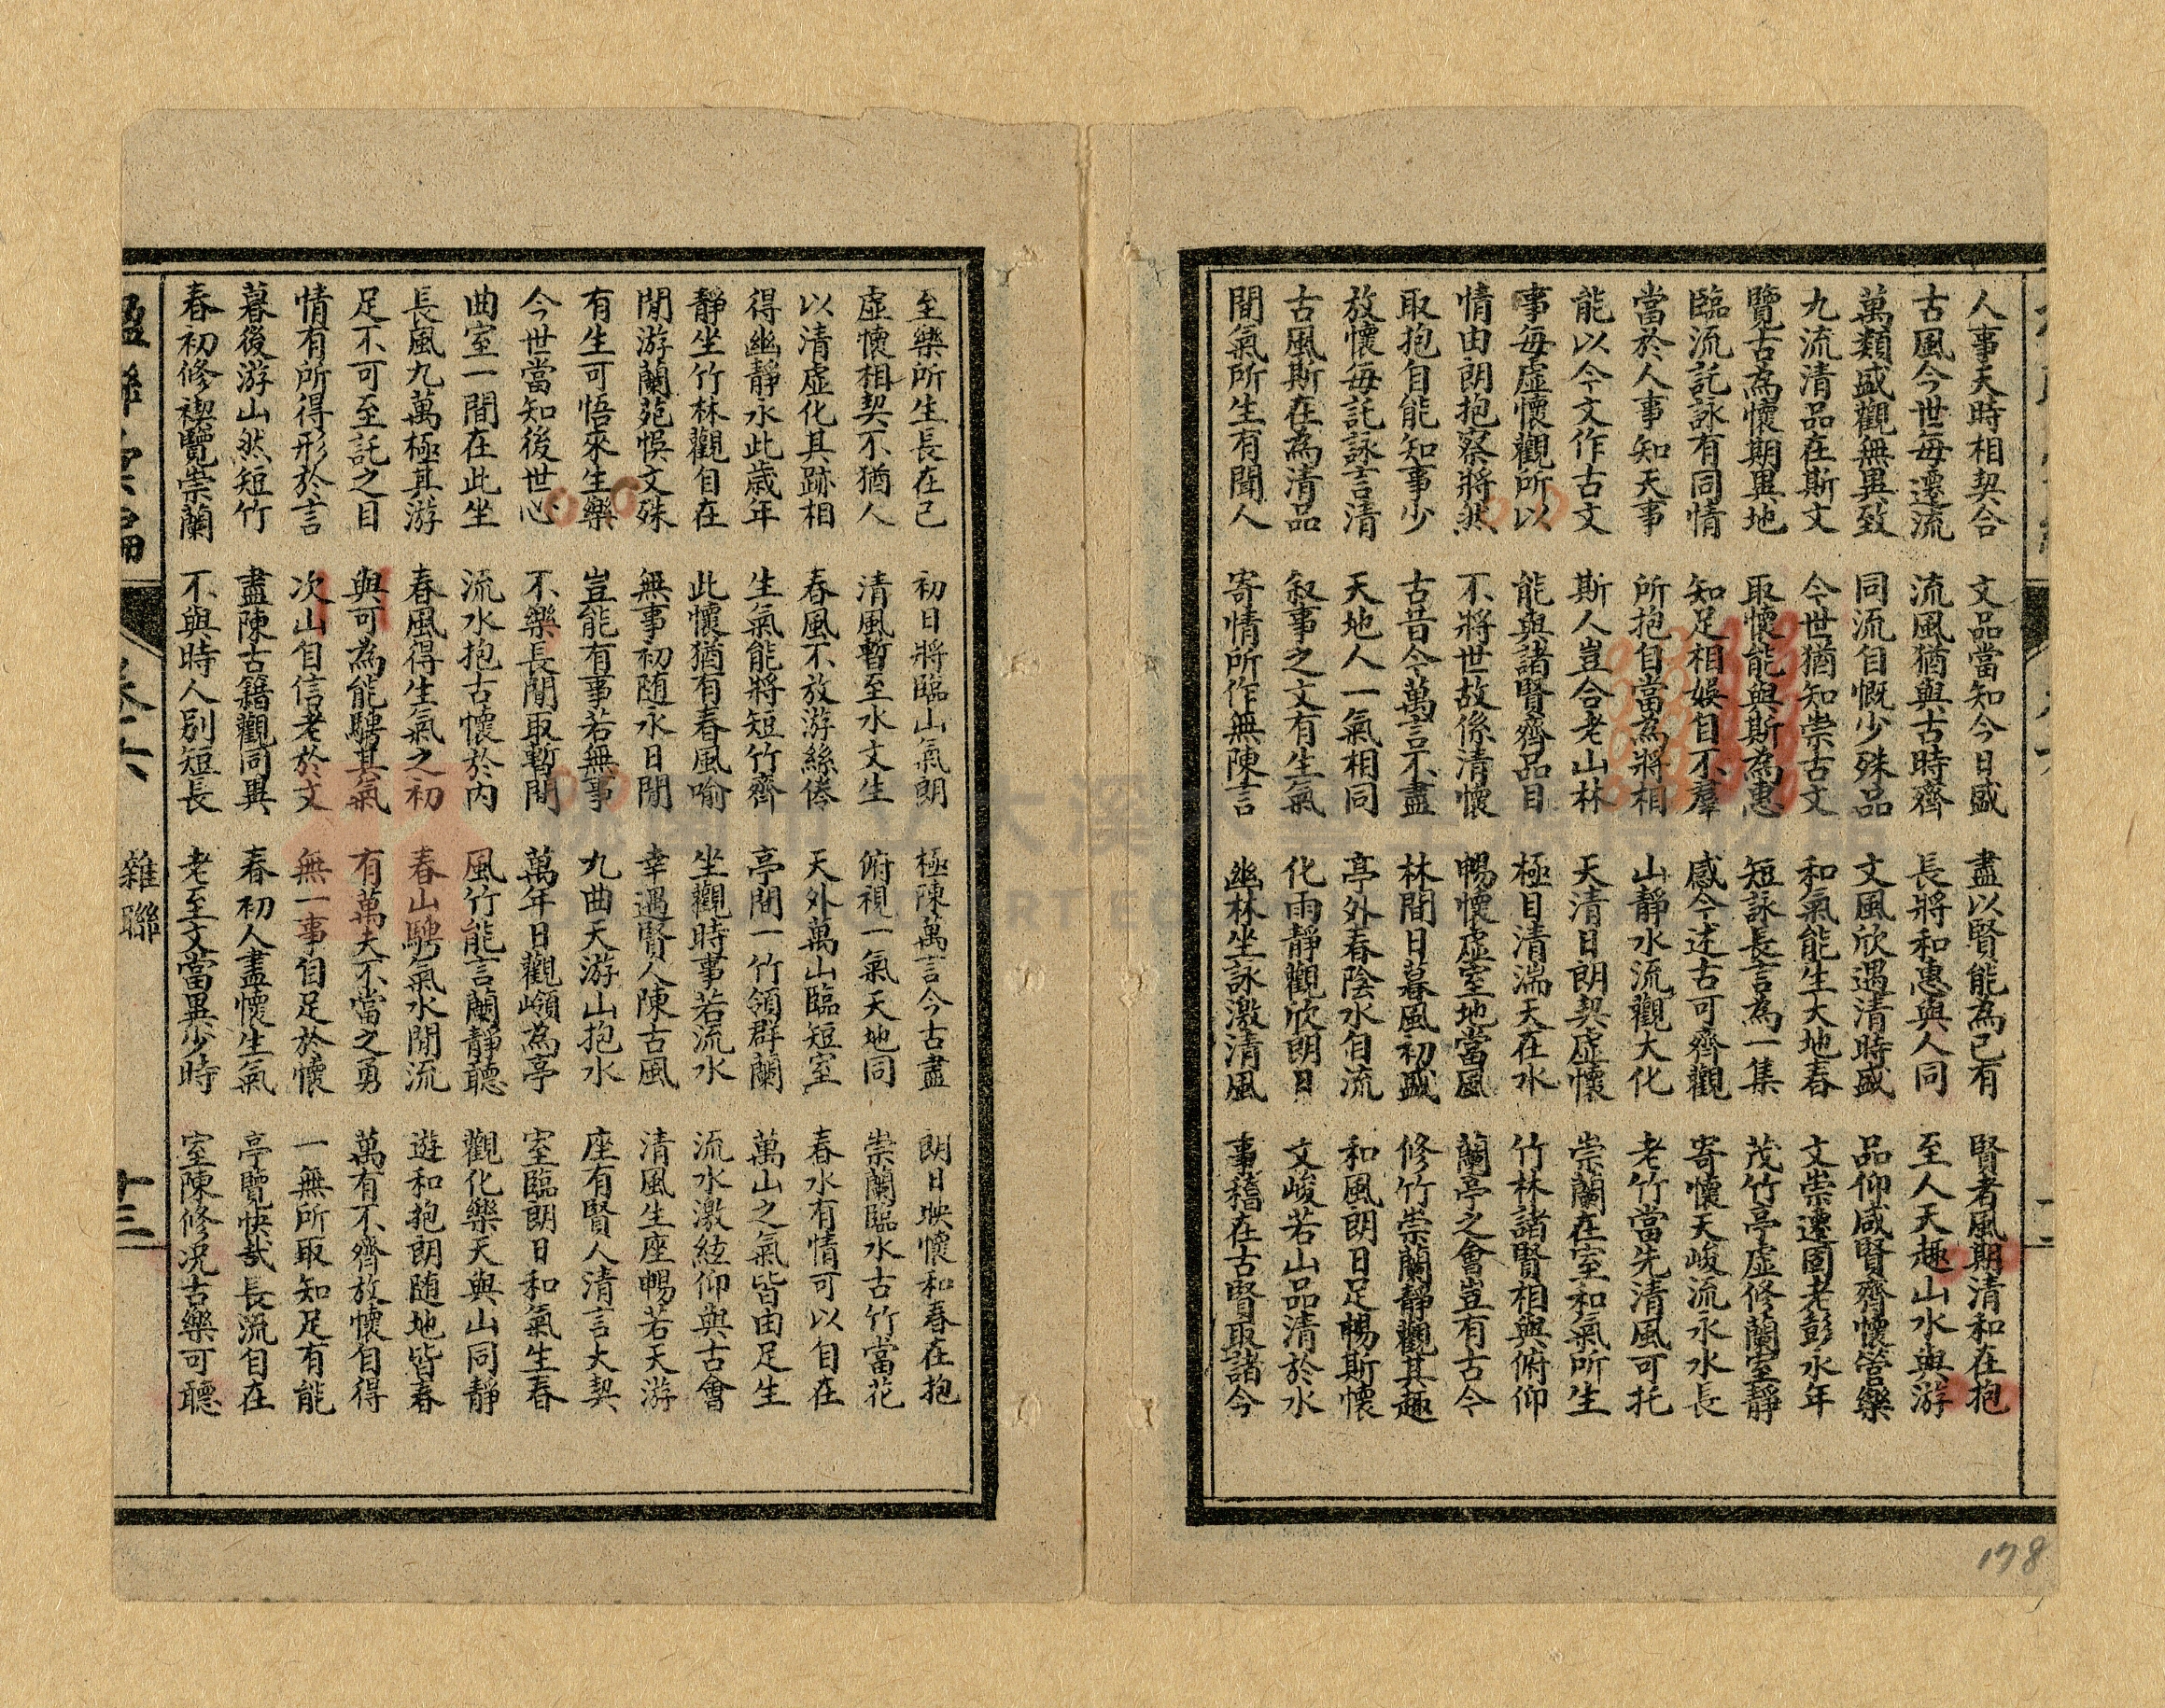 人事天時相契合　文品當知今日盛　盡以賢能為已有　賢者風期清和在抱
古風今世每遷流　流風猶與古時齊　長將和惠與人同　至人天趣山水與游
萬類盛觀無異致　同流自慨少殊品　文風欣遇清時盛　品仰咸賢齊懷管樂
九流清品在斯文　今世猶知崇古文　和氣能生大地春　文崇遷固老彭永年
覽古為懷期異地　取懷能與斯為惠　短詠長言為一集　茂竹亭虛修蘭室靜
臨流託詠有同情　知足相娛自不羣　感今述古可齊觀　寄懷天峻流永水長
當於人事知天事　所抱自當為將相　山靜水流觀大化　老竹當先清風可托
能以今文作古文　斯人豈合老山林　天清日朗契虛懷　崇蘭在室和氣所生
事每虛懷觀所以　能與諸賢齊品目　極目清湍天在水　竹林諸賢相與俯仰
情由朗抱察將然　不將世故係清懷　暢懷虛室地當風　蘭亭之會豈有古今
取抱自能知事少　古昔今萬言不盡　林間日暮風初盛　修竹崇蘭靜觀其趣
放懷每託詠言清　天地人一氣相同　亭外春陰水自流　和風朗日足暢斯懷
古風斯在為清品　叙事之文有生氣　化雨靜觀欣朗日　文峻若山品清於水
間氣所生有聞人　寄情所作無陳言　幽林坐詠激清風　事稽在古賢取諸今
178
至樂所生長在己　初日將臨山氣朗　極陳萬言今古盡　朗日映懷和春在抱
虛懷相契不猶人　清風暫至水文生　俯視一氣天地同　崇蘭臨水古竹當花
以清虛化其跡相　春風不放游絲倦　天外萬山臨短室　春水有情可以自在
得幽靜永此歲年　生氣能將短竹齊　亭間一竹領群蘭　萬山之氣皆由足生
靜坐竹林觀自在　此懷猶有春風喻　坐觀時事若流水　流水激絃仰與古會
閒游蘭苑悞文殊　無事初随永日閒　幸遇賢人陳古風　清風生座暢若天游
有生可悟來生樂　豈能有事若無事　九曲天游山抱水　座有賢人清言大契
今世當知後世心　不樂長閒取暫閒　萬年日觀嶺為亭　室臨朗日和氣生春
曲室一間在此坐　流水抱古懷於內　風竹能言蘭靜聽　觀化樂天與山同靜
長風九萬極其游　春風得生氣之初　春山騁氣水閒流　遊和抱朗随地皆春
足不可至託之目　與可為能騁其氣　有萬夫不當之勇　萬有不齊放懷自得
情有所得形於言　次山自信老於文　無一事自足於懷　一無所取知足有能
暮後游山然短竹　盡陳古籍觀同異　春初人盡懷生氣　亭覽快哉長流自在
春初修禊覽崇蘭　不與時人別短長　老至文當異少時　室陳修况古樂可聽
楹聯　卷六　雜聯　十三